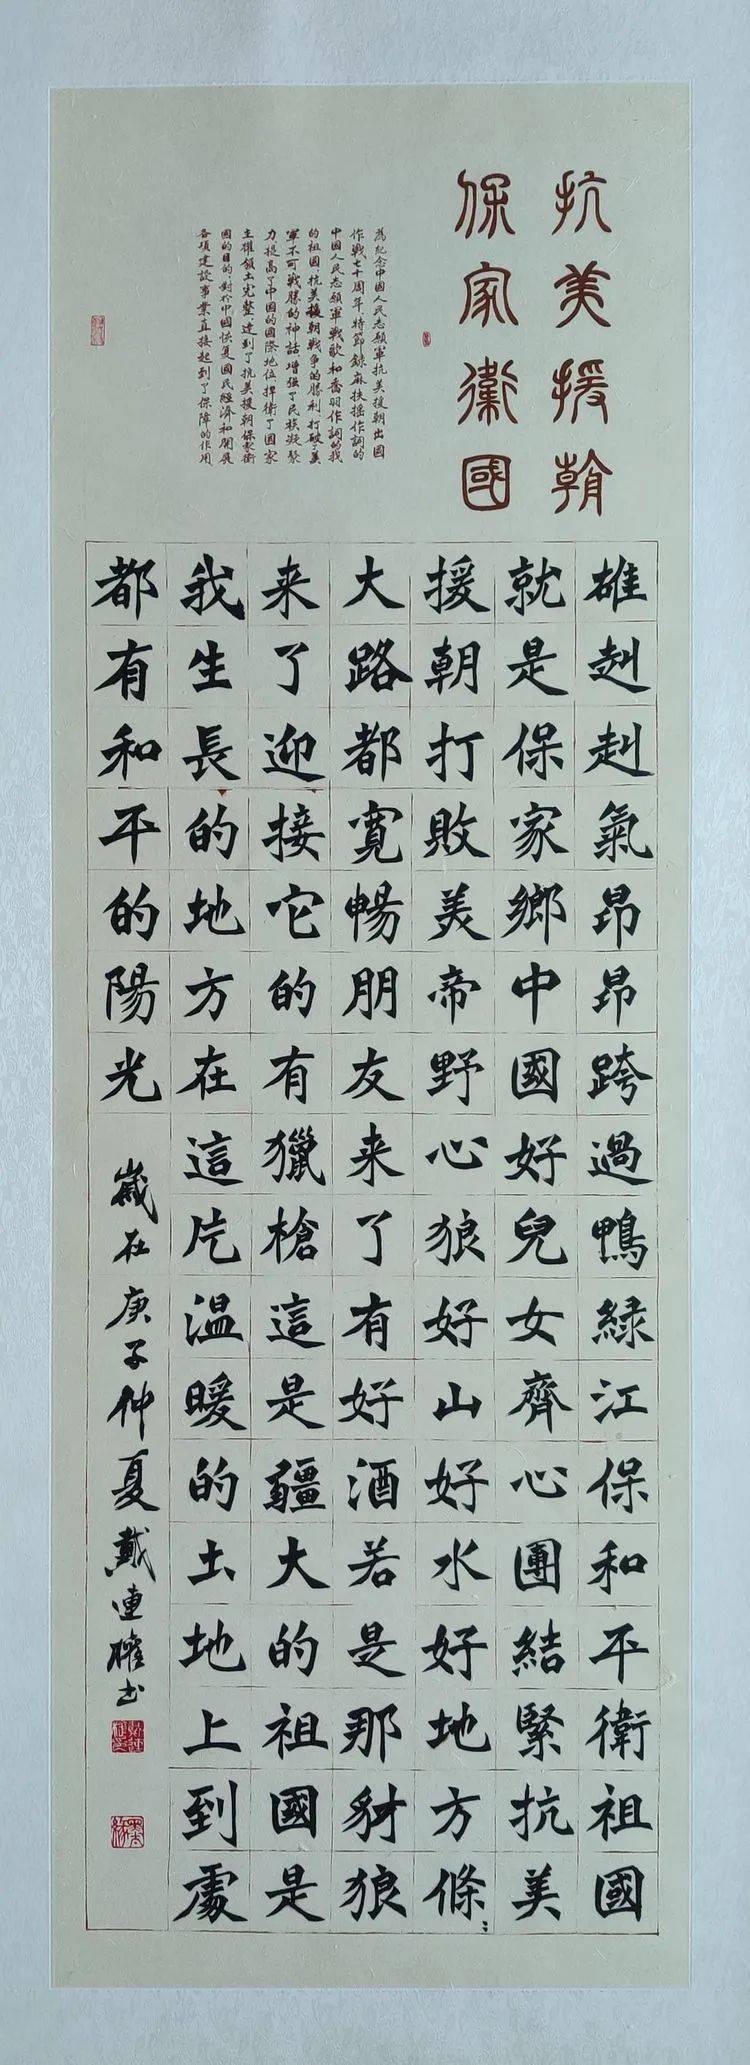 抗美援朝
保家衛國
為紀念中國人民志願軍抗美援朝出國
作戰七十周年特節錄麻扶摇作詞的
中國人民志願軍戰歌和喬羽作詞的我
的祖國抗美援朝戰爭的勝利打破了美
軍不可戰勝的神話增强了民族凝聚
力提高了中国的國際地位捍衛了国家
主權領土完整達到了抗美援朝保家衛
國的目的對於中國恢复國民經濟和開展
各項建設事業直接起到了保障的作用
雄赳赳氣昂昂跨過鴨綠江保和平衛祖國
就是保家鄉中國好兒女齊心團結緊抗美
援朝打敗美帝野心狼好山好水好地方條〻
大路都寬暢朋友来了有好酒若是那豺狼
来了迎接它的有獵槍這是疆大的祖國是
我生長的地方在這片温暖的土地上到處
都有和平的陽光
歲在庚子仲夏戴連權书